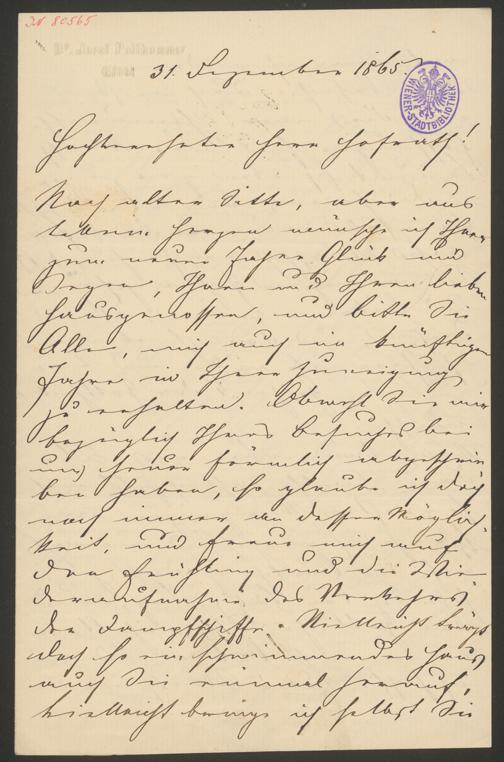 JN 80565
Dr. Josef Pollhammer
31. Dezember 1865.
WIENER-STADTBIBLIOTHEK
Hochverehrter Herr Hofrath!
Nach alter Sitte, aber aus
Herzen wünsche ich Ihnen
zum neuen Jahre Glück und
Segen, Ihnen und Ihren lieben
Hausgenossen, und bitte Sie
Alle, mich auch im künftigen
Jahre in Ihrer Zuneigung
zu erhalten. Obwohl Sie mir
bezüglich Ihres Besuches bei
uns heuer förmlich abgeschrie-
ben haben, so glaube ich doch
noch immer an dessen Möglich-
keit, und freue mich auf
den Frühling und die Wie-
deraufnahme des Verkehrs
der Dampfschiffe. Vielleicht trägt
doch so ein schwimmendes Haus
auch Sie einmal herauf,
vielleicht bringe ich selbst Sie